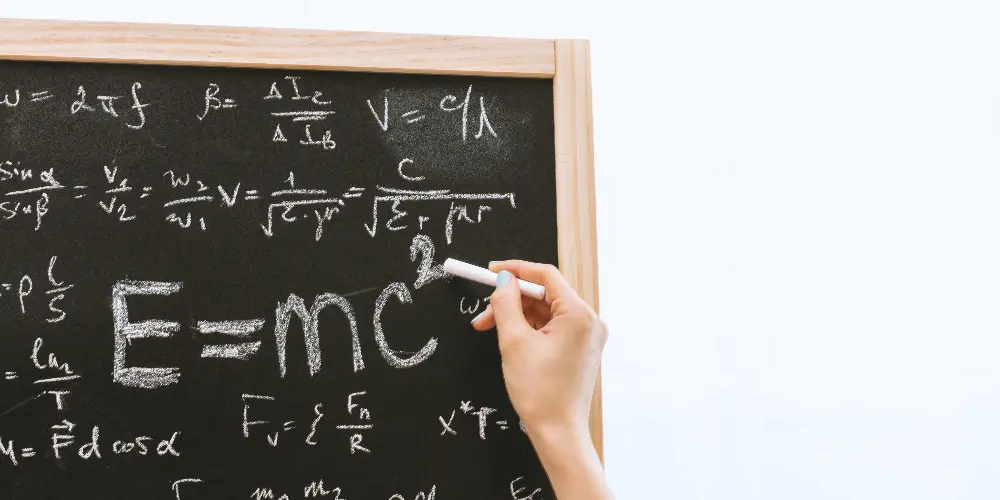 ω = 2πf β = ΔIc/ΔIB V = c/μ
sin α/sin β = v1/v2 = w2/w1 V = 1/√ε·γr = C/√εr μr
= ρ l/S
E=mc²
ω
= ln2/T
Fv = ξ Fn/R x*T =
M = F⃗d cos α
m1 m2
E